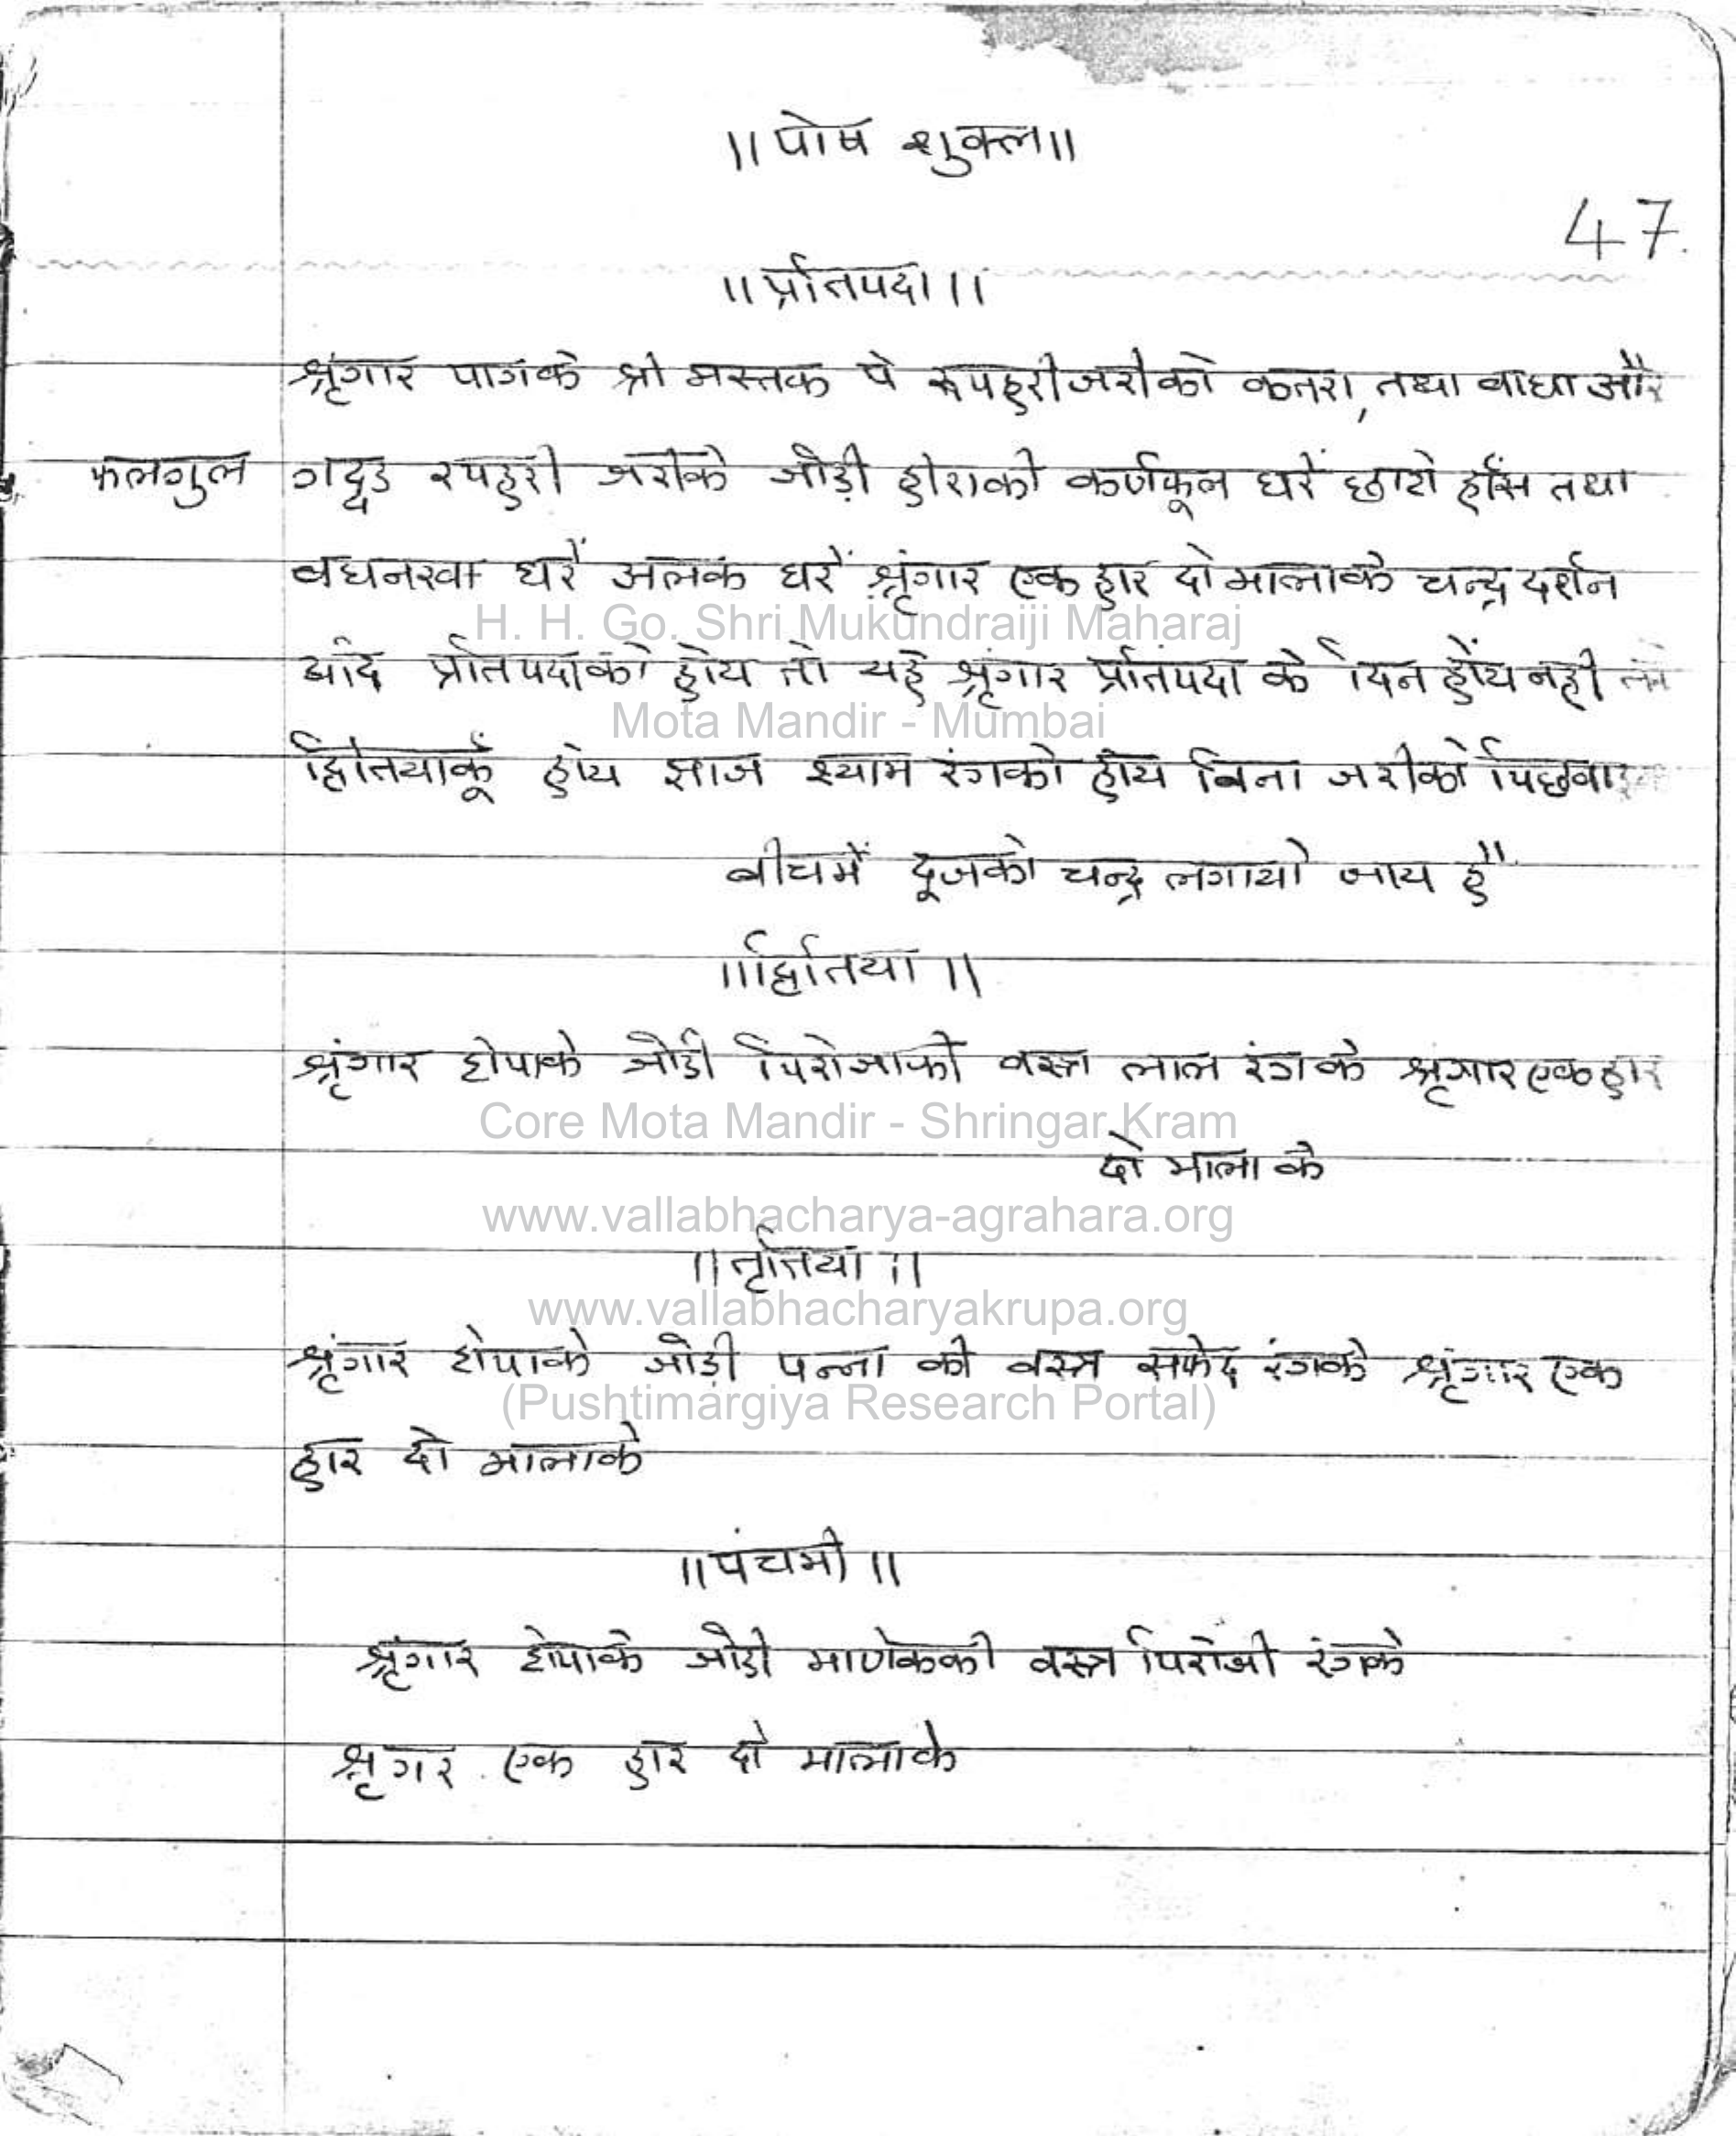 ॥ पोष शुक्ल॥
47.
॥ प्रतिपदा ॥
श्रृंगार पागके श्री मस्तक पे रूपहरी जरीको कतरा, तथा वाघा और
गद्दड रुपहरी जरीके जोड़ी हीराको कर्णफूल धरें छोटो हाँस तथा
वघनखा धरें अलक धरें श्रृंगार एक हार दो मालाके चन्द्र दर्शन
यदि प्रतिपदाको होय तो यह श्रृंगार प्रतिपदा के दिन होय नही तो
द्वितियाकूँ होय साज श्याम रंगको होय बिना जरीको पिछवाई
बीचमें दूजको चन्द्र लगायो जाय है
॥ द्वितिया ॥
श्रृंगार टोपाके जोडी पिरोजाकी वस्त्र लाल रंगके श्रृंगार एक हार
दो माला के
॥ तृतिया ॥
श्रृंगार टोपाके जोड़ी पन्ना की वस्त्र सफेद रंगके श्रृंगार एक
हार दो मालाके
॥ पंचमी ॥
श्रृंगार टोपाके जोडी माणेककी वस्त्र पिरोजी रंगके
श्रृगर एक हार दो मालाके
H. H. Go. Shri Mukundraiji Maharaj
Mota Mandir - Mumbai
Core Mota Mandir - Shringar Kram
www.vallabhacharya-agrahara.org
www.vallabhacharyakrupa.org
(Pushtimargiya Research Portal)